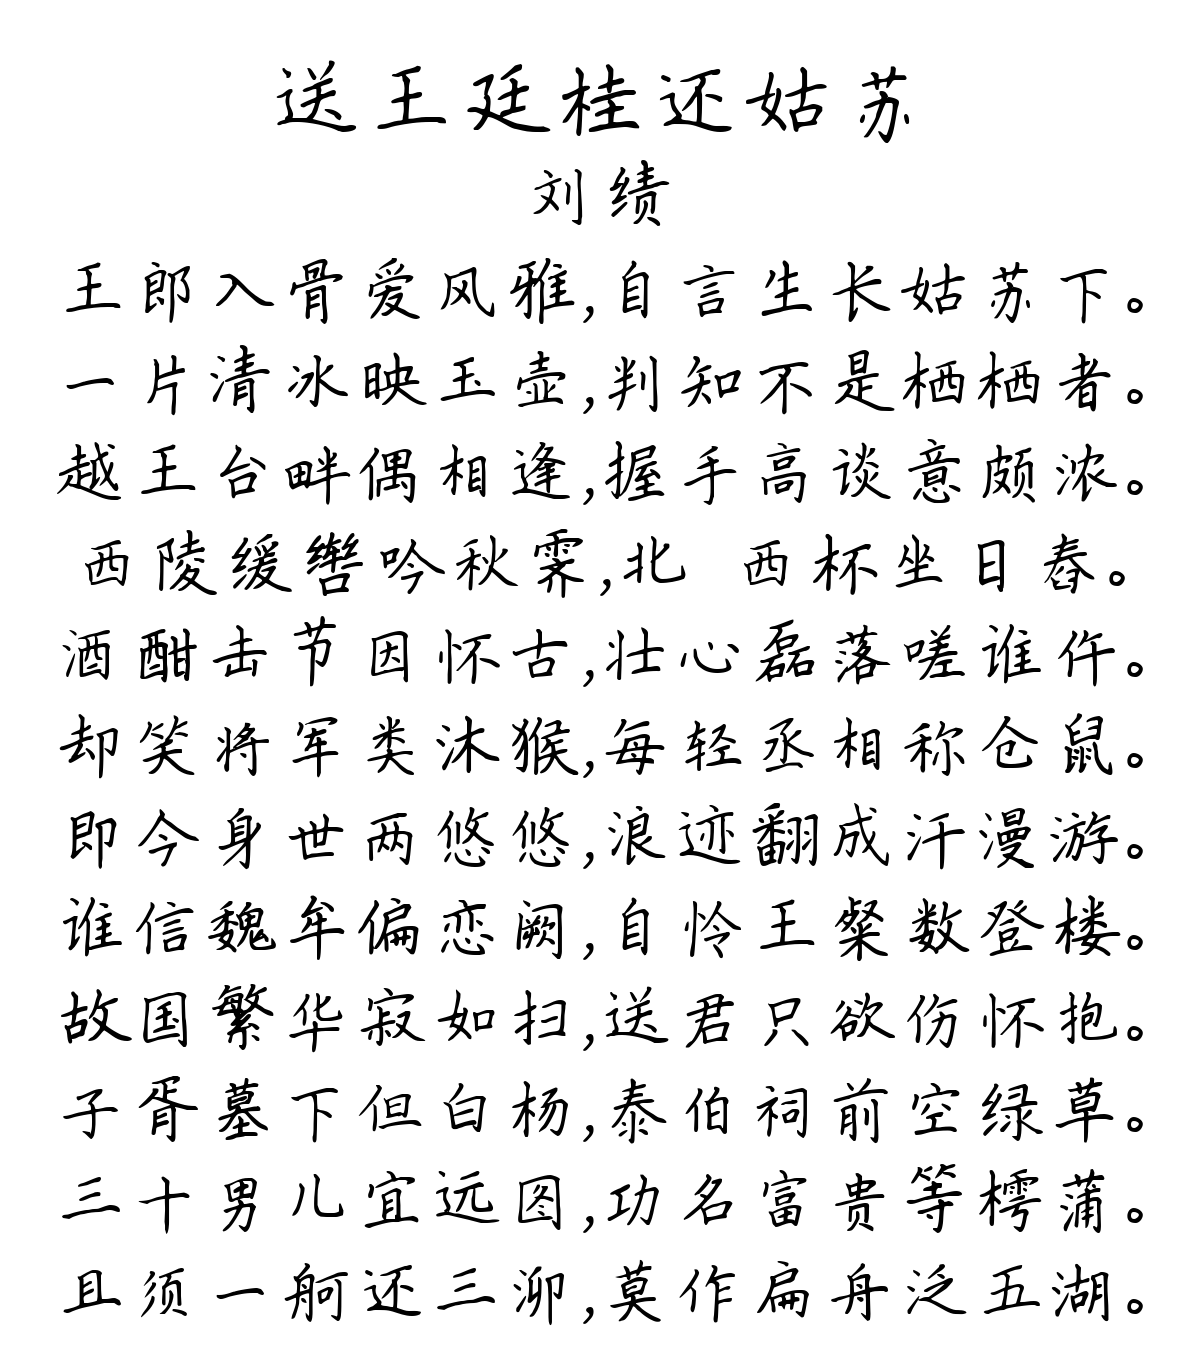 送王廷桂还姑苏
刘绩
王郎入骨爱风雅,自言生长姑苏下。
一片清冰映玉壶,判知不是栖栖者。
越王台畔偶相逢,握手高谈意颇浓。
西陵缓辔吟秋霁,北 西杯坐日舂。
酒酣击节因怀古,壮心磊落嗟谁仵。
却笑将军类沐猴,每轻丞相称仓鼠。
即今身世两悠悠,浪迹翻成汗漫游。
谁信魏牟偏恋阙,自怜王粲数登楼。
故国繁华寂如扫,送君只欲伤怀抱。
子胥墓下但白杨,泰伯祠前空绿草。
三十男儿宜远图,功名富贵等樗蒲。
且须一舸还三泖,莫作扁舟泛五湖。